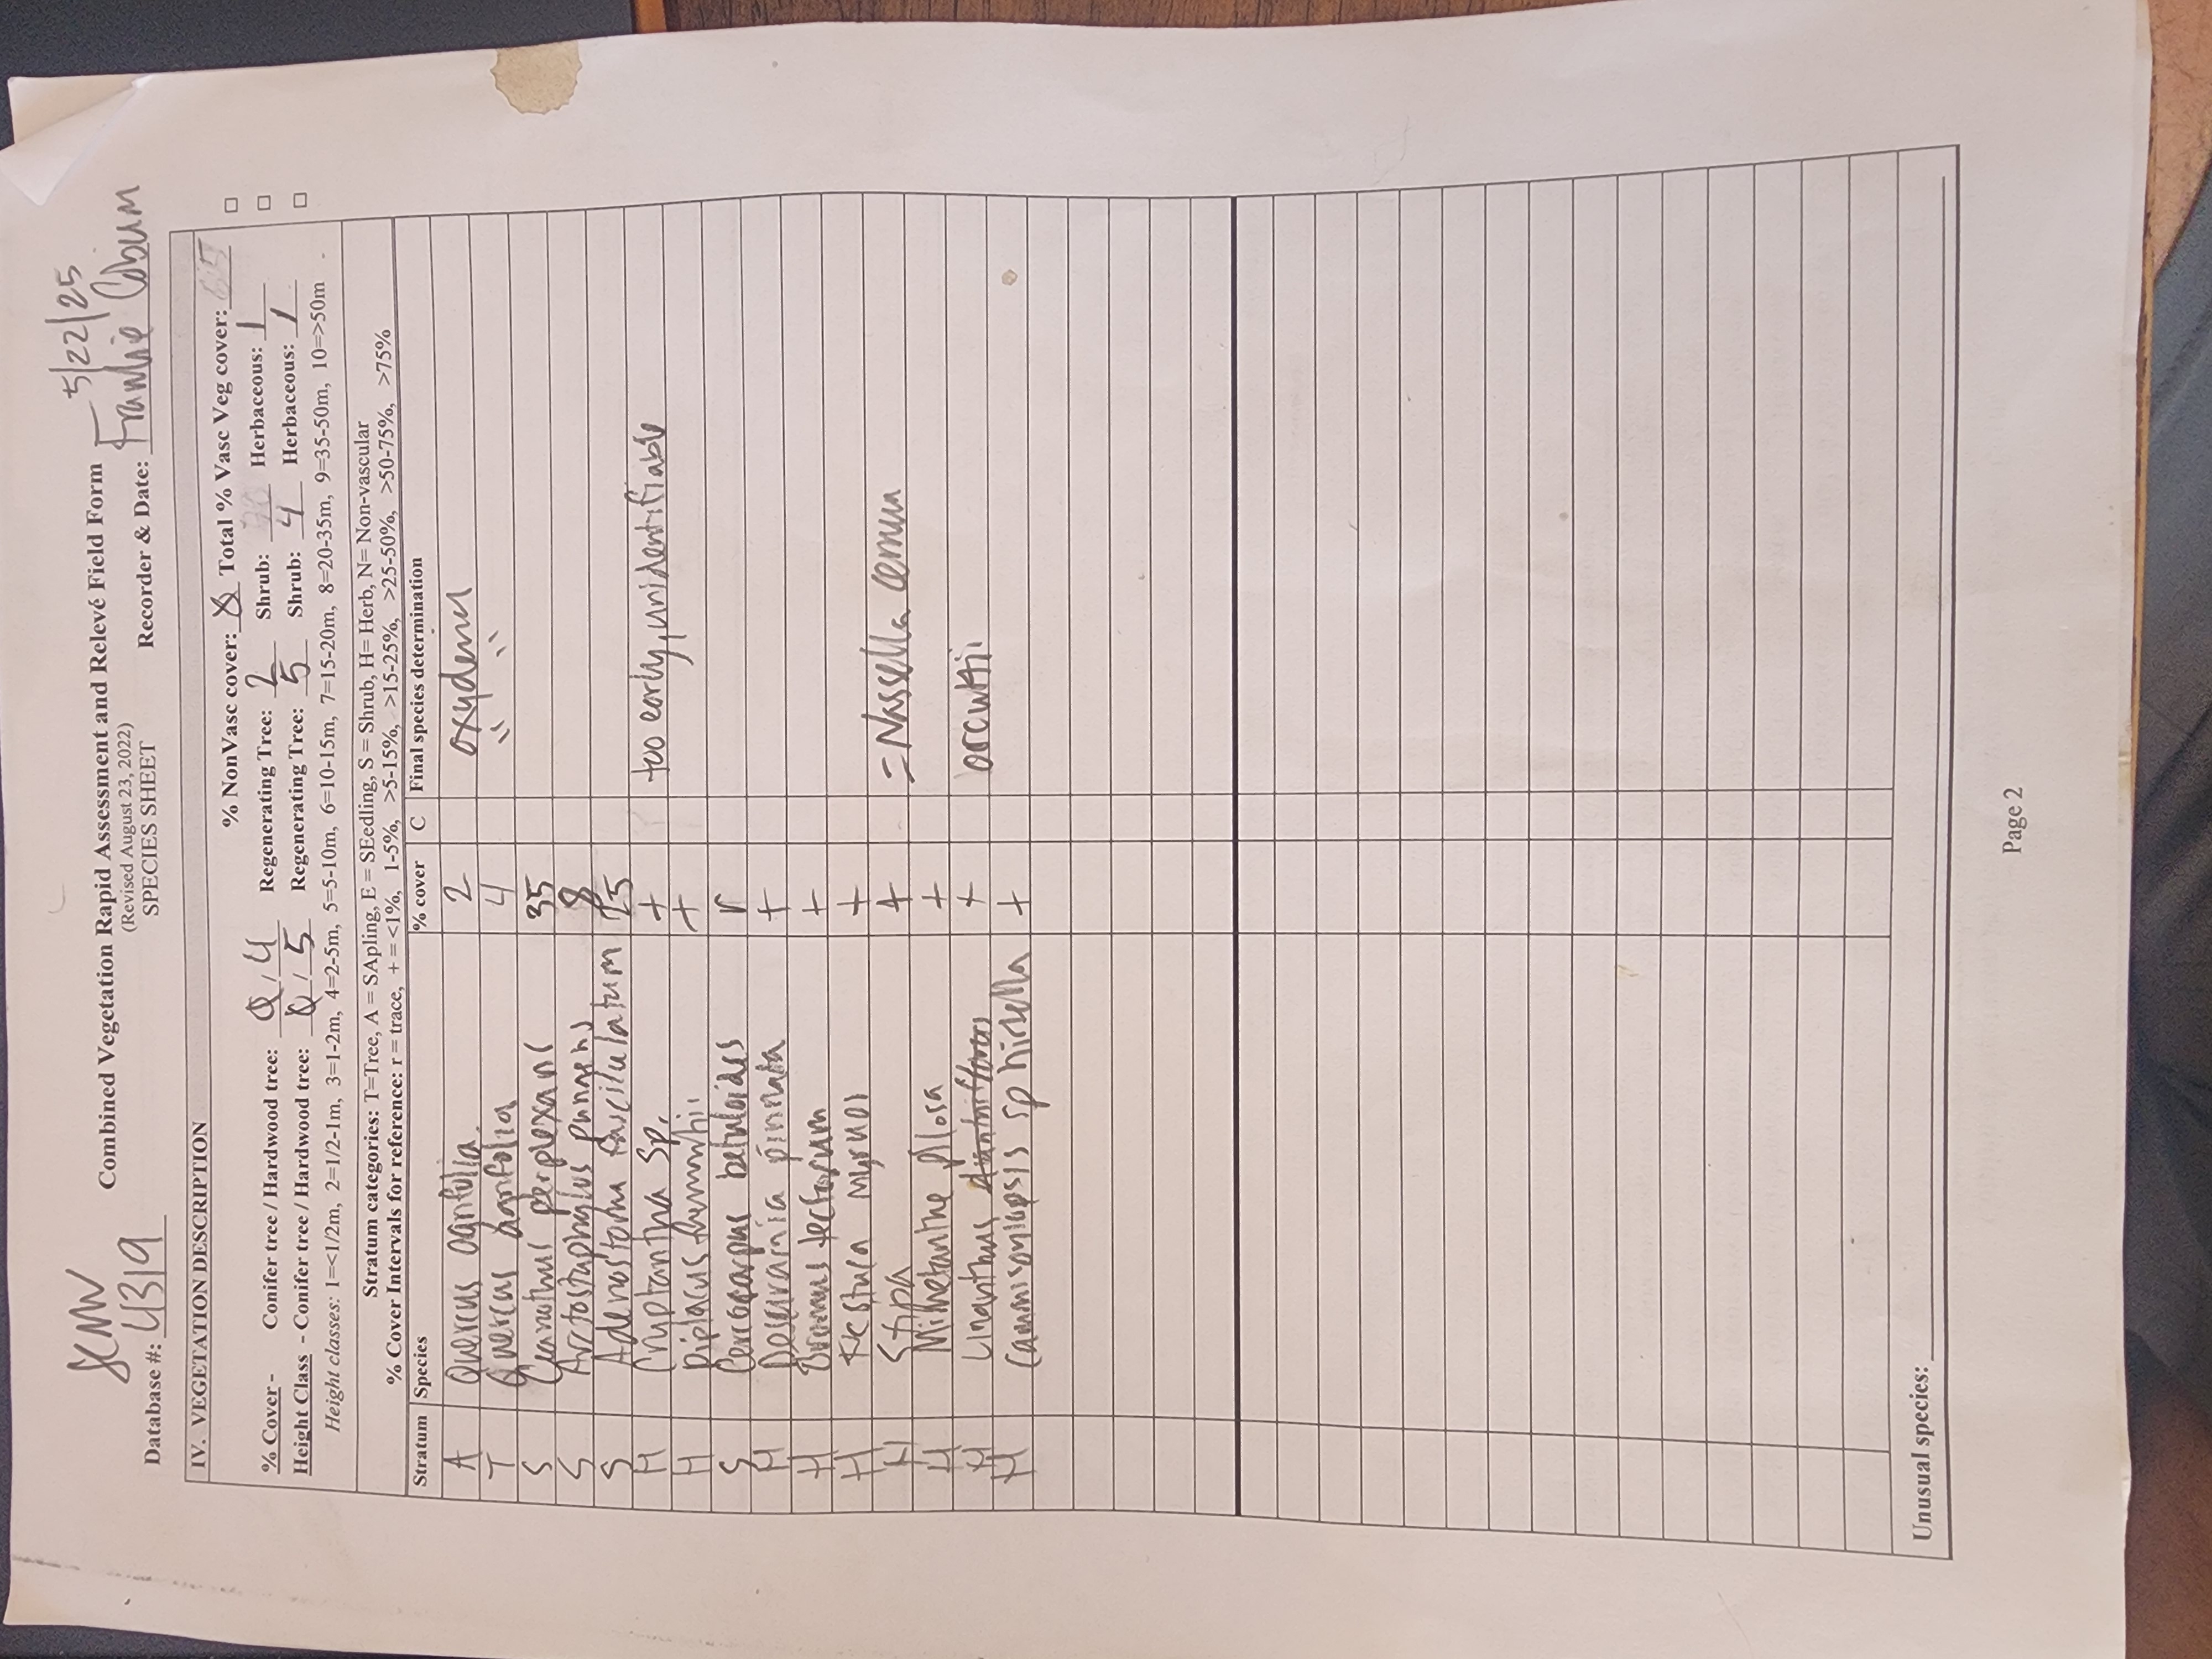 5/22/25
SCMW
Combined Vegetation Rapid Assessment and Relevé Field Form
(Revised August 23, 2022)
Database #: 4319 SPECIES SHEET Recorder & Date: Frankie Coburn
IV. VEGETATION DESCRIPTION
% NonVasc cover: 0 Total % Vasc Veg cover: □
% Cover - Conifer tree / Hardwood tree: 0 / 4 Regenerating Tree: 2 Shrub: Herbaceous: 1 □
Height Class - Conifer tree / Hardwood tree: 0 / 5 Regenerating Tree: 5 Shrub: 4 Herbaceous: 1 □
Height classes: 1=<1/2m, 2=1/2-1m, 3=1-2m, 4=2-5m, 5=5-10m, 6=10-15m, 7=15-20m, 8=20-35m, 9=35-50m, 10=>50m
Stratum categories: T=Tree, A = SApling, E = SEedling, S = Shrub, H= Herb, N= Non-vascular
% Cover Intervals for reference: r = trace, + = <1%, 1-5%, >5-15%, >15-25%, >25-50%, >50-75%, >75%
Stratum Species % cover C Final species determination
A Quercus agrifolia 2 oxydenu
T Quercus agrifolia 4 " "
S Ceanothus perplexans 35
S Arctostaphylos pungens 8
S Adenostoma fasciculatum 25
H Cryptantha sp. + too early, unidentifiable
H Diplacus +
S Cercocarpus betuloides r
H Descurainia pinnata +
H Bromus tectorum +
H Festuca myruos +
H Stipa + = Nassella cernua
H Mimetanthe pilosa +
H Linanthus + orcuttii
H Cammisoniopsis sp hirtella +
Unusual species:
Page 2